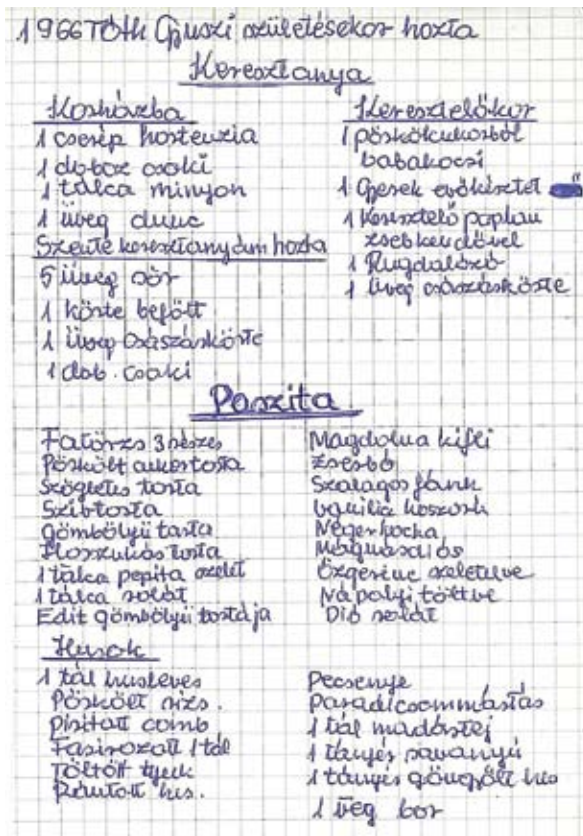 1966 Tóth Gyuszi születésekor hozta
Keresztanya
Kosházba
1 cserép hortenzia
1 doboz csoki
1 tálca minyon
1 üveg dunc
Szente keresztanyám hozta
5 üveg sör
1 körte befőtt
1 üveg császárkörte
1 dob. csoki
Keresztelőkor
1 pörkölcukorból
babakocsi
1 Gyerek evőkészlet
1 Keresztelő paplan
zsebkendővel
1 Rugdalózó
1 üveg császárkörte
Paszita
Fatörzs 3 részes
Pörkölt cukortorta
Szögletes torta
Szívtorta
Gömbölyű torta
Hosszúkás torta
1 tálca pepita szelet
1 tálca rolát
Edit gömbölyű tortája
Magdolna kifli
Zserbó
Szalagos fánk
vanilia koszorú
Négerkocka
Őzgerinc szeletelve
Nápolyi töltve
Dió rolát
Húsok
1 tál húsleves
Pörkölt rizs.
pirított comb
Fasírozott 1 tál
Töltött tyúk
Rántott hús.
Pecsenye
Paradicsommártás
1 tál madártej
1 tányér savanyú
1 tányér göngyölt hús
1 üveg bor